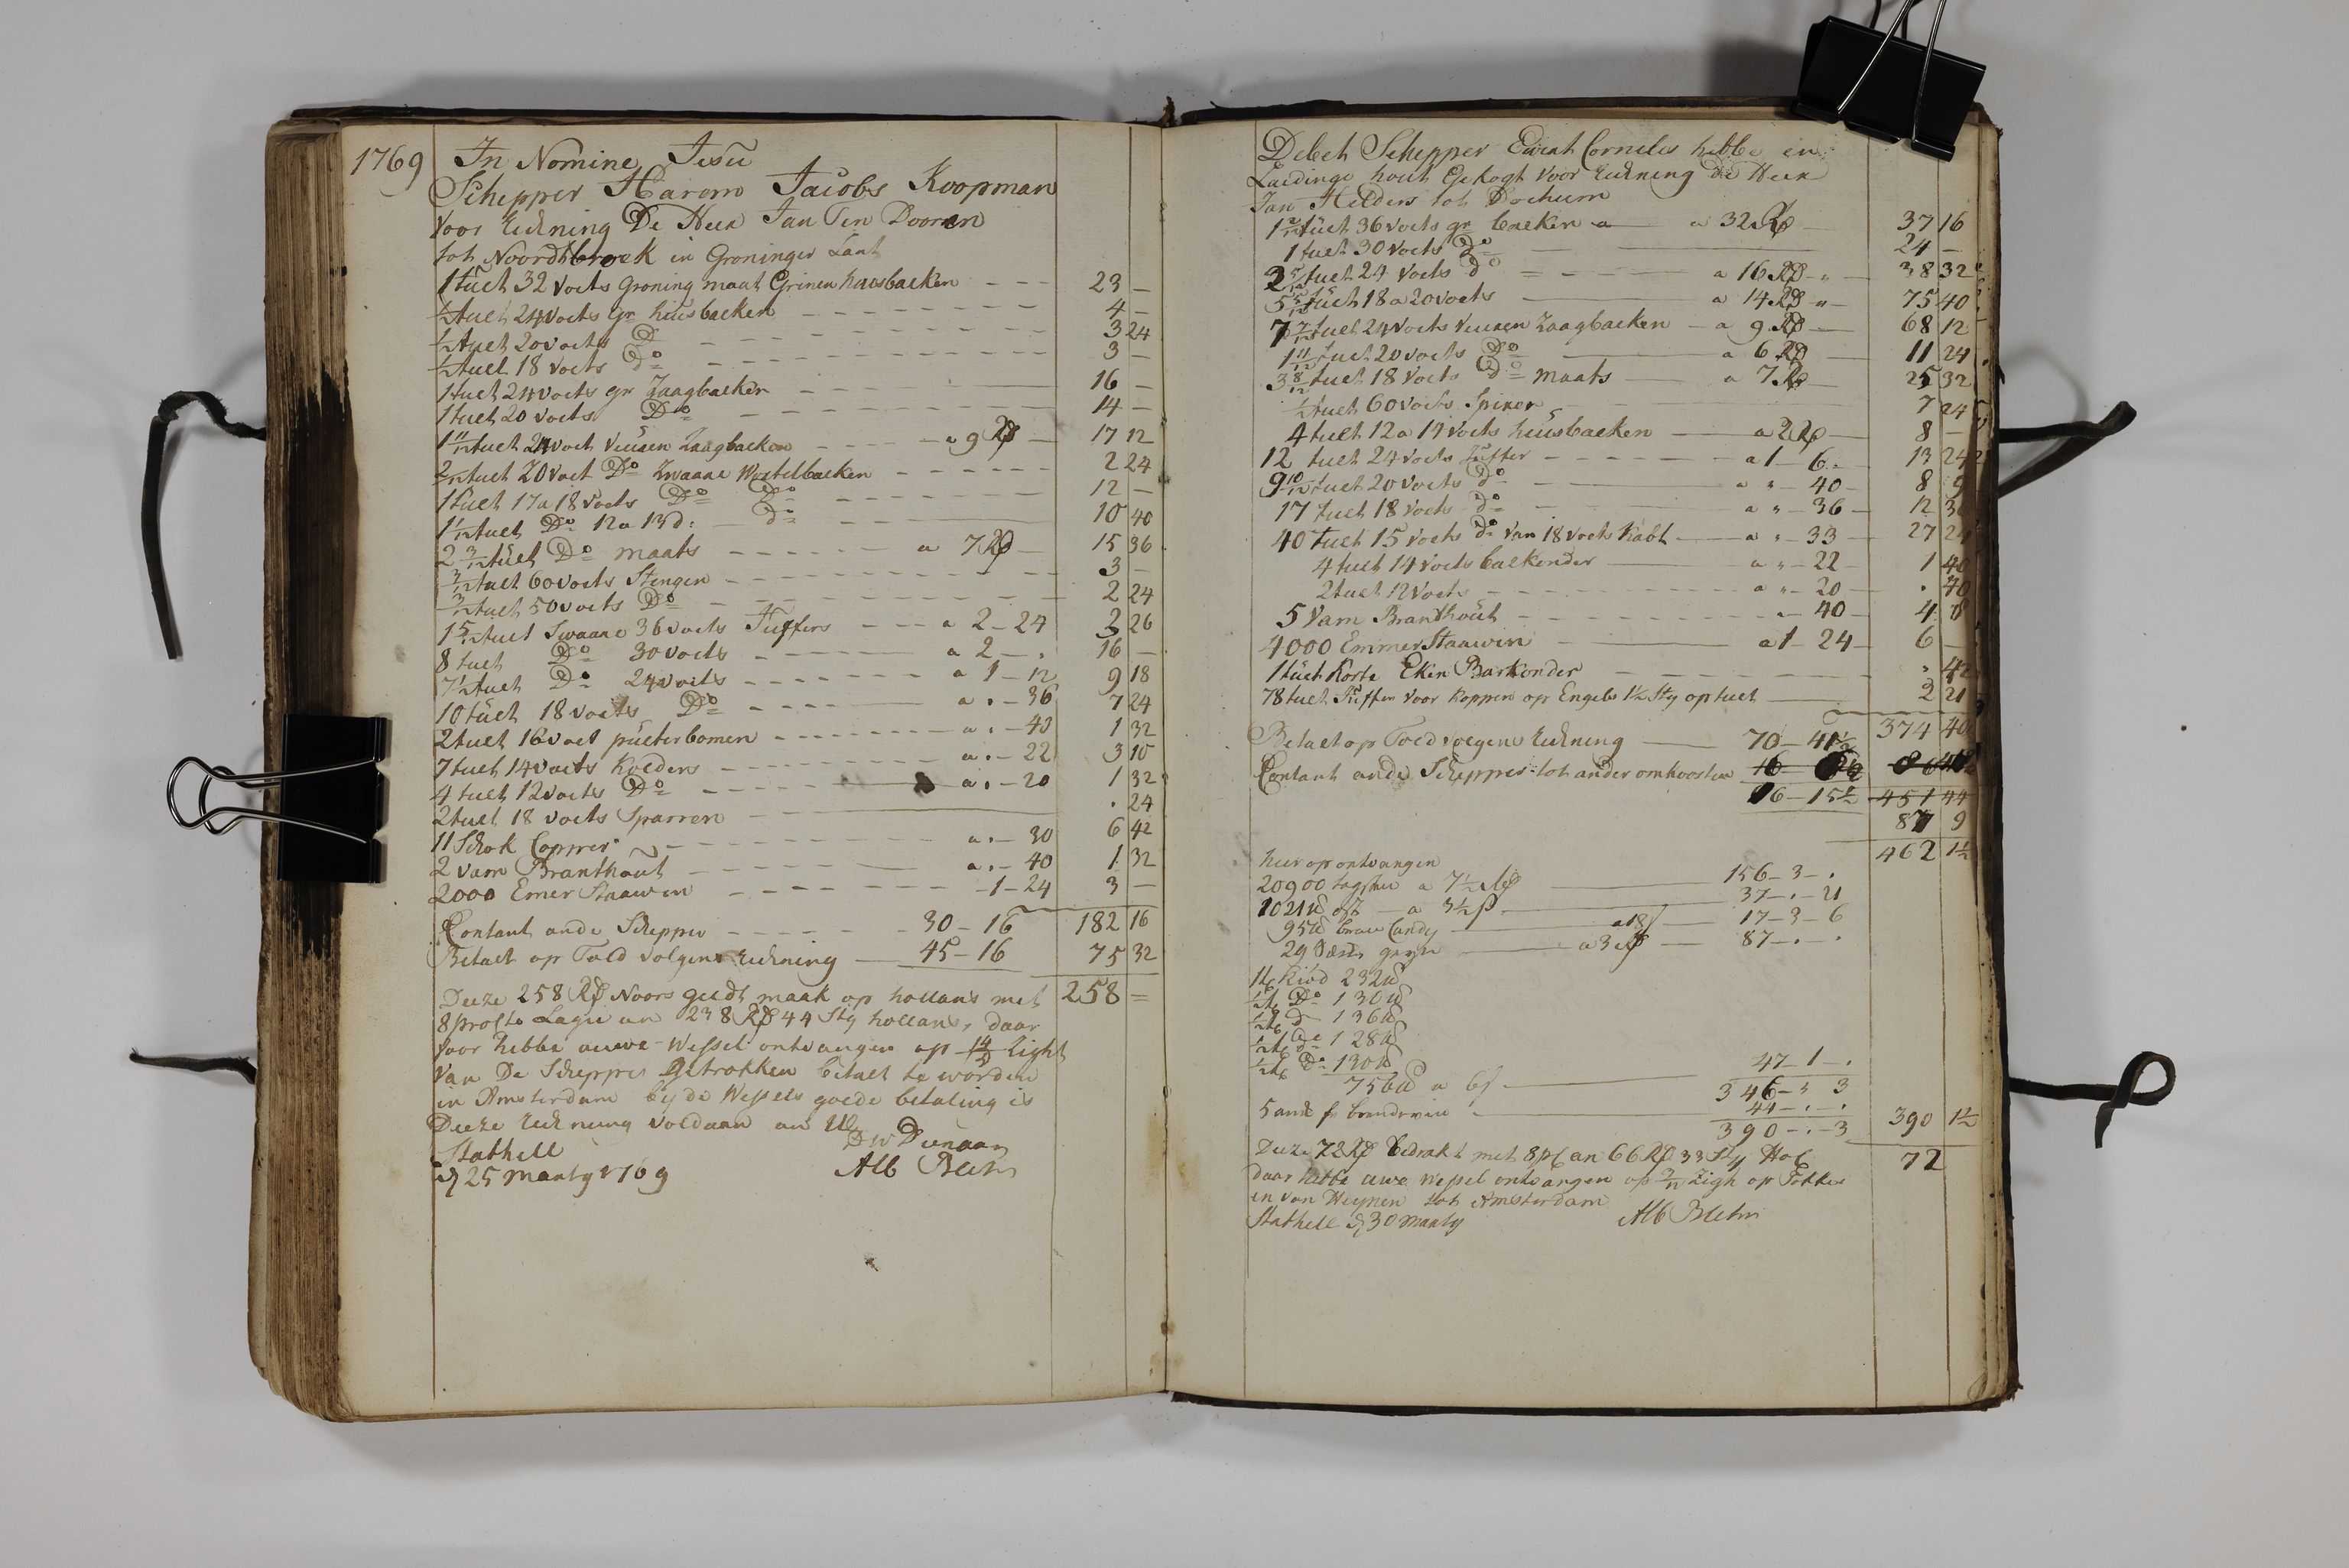 1769 In Nomine Jesu
Schepper Harom Jacobs Koopman
voor Rekning De Heer Jan Ten Dooren
tot Noordtbroek in Groninger Lant
1 tuelt 32 voets Groning maat Grinen huusbaeken 23 —
½ tuelt 24 voets gr huusbaeken 4 —
½ tuelt 20 voets D° 3 24
½ tuelt 18 voets d° 3 —
1 tuelt 24 voets gr Zaagbaeken 16 —
1 tuelt 20 voets D° 14 —
1 11/12 tuelt 24 voet vuuren Zaagbaeken a 9 R 17 12
2/12 tuelt 20 voet D° Zwaare Wortelbaeken 2 24
1 tuelt 17 a 18 voets D° D° 12 —
1 1/12 tuelt D° 12 a 13 d: d° 10 40
2 3/12 tuelt D° maats a 7 R 15 36
3/12 tuelt 60 voets Stengen 3 —
3/12 tuelt 50 voets D° 2 24
1 5/12 tuelt Swaare 36 voets Juffers a 2 — 24 3 26
8 tuelt D° 30 voets a 2 — . 16 —
7½ tuelt D° 24 voets a 1 — 12 9 18
10 tuelt 18 voets D° a . — 36 7 24
2 tuelt 16 voet pueterbomen a . — 40 1 32
7 tuelt 14 voets Kolders a . — 22 3 10
4 tuelt 12 voets D° a . — 20 1 32
2 tuelt 18 voets Sparren . 24
11 Schok Copper a . — 30 6 42
2 vam Branthout a . — 40 1 32
2000 Emer Staawen 1 — 24 3 —
Contant ande Schepper 30 — 16 182 16
Betaelt op Told volgens Rekning 45 — 16 75 32
Deeze 258 R Noors geldt maak op hollans met 258 =
8 pro Cto Lagie an 238 R 44 Sty hollans, daar
voor hebbe uwe Wessel ontvangen op Zight
van De Schepper Getrokken betaelt te worden
in Amsterdam bij de Wessels goede betaling is
Deeze Rekning voldaan an Ul
Stathell DW Dienaar
d 25 Maarty 1769 Alb Blehr
Debet Schepper Evert Cornelis hebbe in
Laedinge hout Gekogt voor Rekning de Heer
Jan Helders tot Dochum
1 2/12 tuelt 36 voets gr baeken a 32 R 37 16
1 tuelt 30 voets D° 24 —
2 5/12 tuelt 24 voets d° a 16 R 38 32
5 5/12 tuelt 18 a 20 voets a 14 R 75 40
7 7/12 tuelt 24 voets vuuren Zaagbaeken a 9 R 68 12
1 11/12 tuelt 20 voets D° a 6 R 11 24
3 8/12 tuelt 18 voets D° maats a 7 R 25 32
½ tuelt 60 voets Spiren 7 24
4 tuelt 12 a 14 voets huusbaeken a 2 R 8 —
12 tuelt 24 voets Juffer a 1 — 6 13 24
9 10/12 tuelt 20 voets D° a " — 40 8 9
17 tuelt 18 voets d° a " — 36 12 36
40 tuelt 15 voets d° van 18 voets Kabt a " — 33 27 24
4 tuelt 14 voets baelkonder a " — 22 1 40
2 tuelt 12 voets a " — 20 . 40
5 vam Branthout " — 40 4 8
4000 Emmer Staawen a 1 24 6 —
1 tuelt Korte Eken Barkonder . 42
78 tuelt Juffer voor Koppen op Engels 1½ Sty op tuelt 2 21
374 40
Betaelt op Told volgens Rekning 70 — 41½
Contant ande Schepper tot ander omkoosten 16
16 — 15½ 451 44
87 9
462 1½
hier op ontvangen
20900 a 7½ 156 — 3 — .
1021 a 3½ 37 — . — 21
95 brau Candy a 18 17 — 3 — 6
29 a 3 87 — . — .
232
D° 130
d° 136
d° 128
D° 130 47 — 1 — .
756 a 6 346 — 3 3
5 anck fr brandewin 44 — . — . 390 1½
390 — . — 3
Deeze 72 R bedrakt met 8 an 66 R 33 Sty Hol 72
daar hebbe uwe Wessel ontvangen op Zigh op Fokke
en van Weijnen tot Amsterdam
Stathell d 30 Maarty Alb Blehr